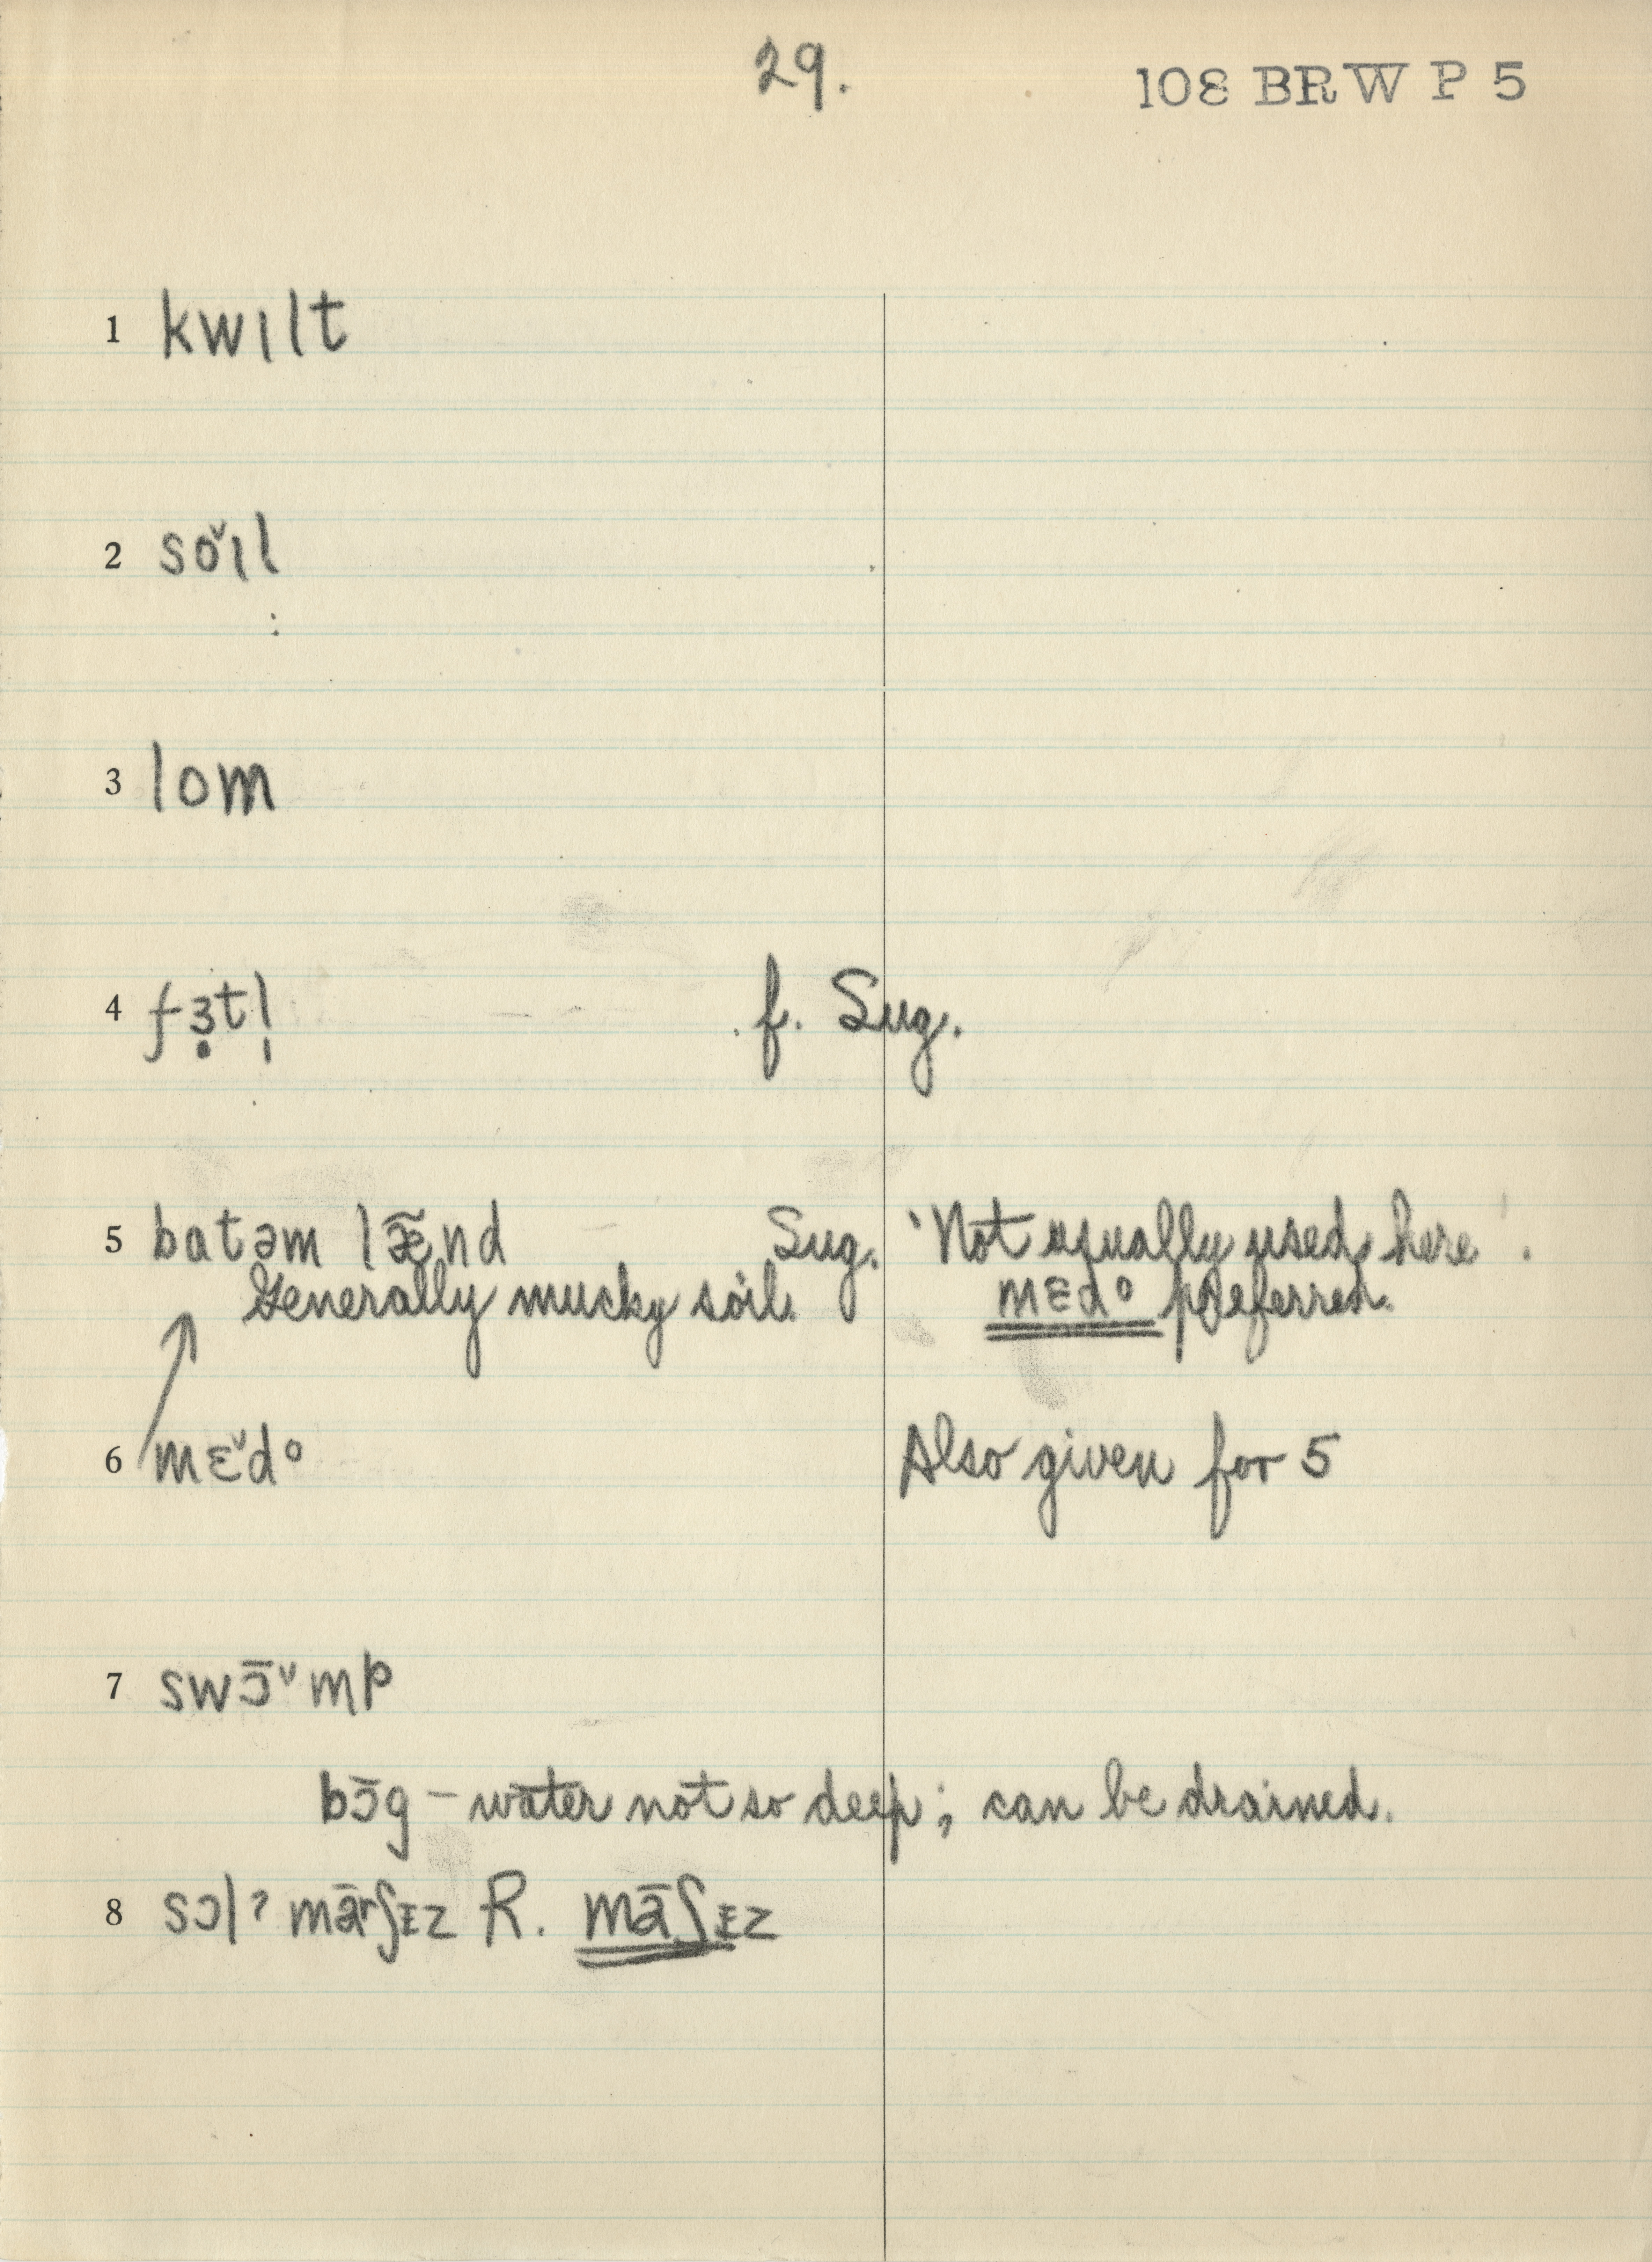 29. 108 BRW P 5
1 kwɪlt
2 sŏɪl
3 lom
4 fɜ̣tl̩ f. Sug.
5 batəm læ̃nd Sug. 'Not usually used here'.
Generally mucky soil. mɛdo preferred.
6 mɛ̆do Also given for 5
7 swɔ̄ᵛmp
bɔ̄g – water not so deep; can be drained.
8 sɔlˀ mārʃɪz R. māʃɪz